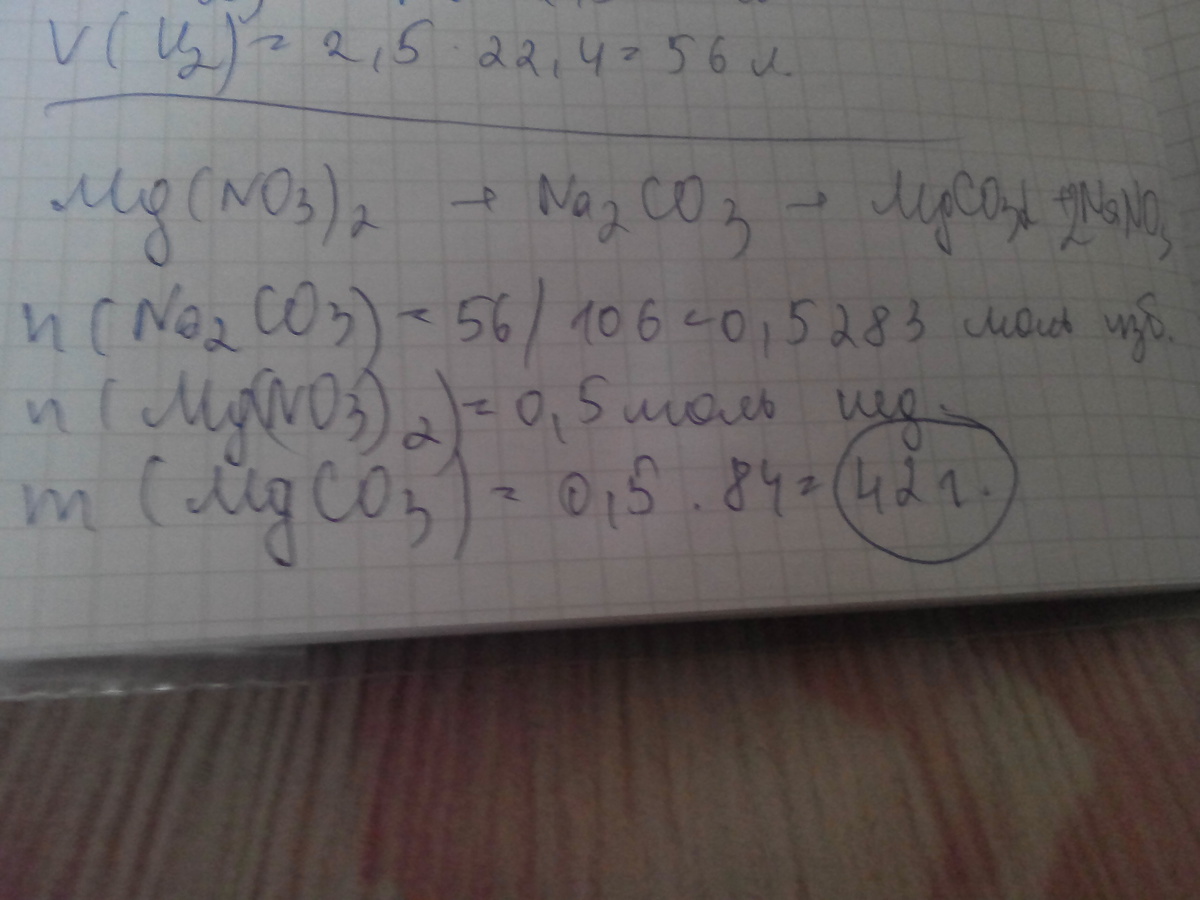 V(H₂) = 2,5 · 22,4 = 56 л
Mg(NO₃)₂ → Na₂CO₃ → MgCO₃↓ + 2NaNO₃
n(Na₂CO₃) = 56/106 = 0,5283 моль изб.
n(Mg(NO₃)₂) = 0,5 моль нед.
m(MgCO₃) = 0,5 · 84 = 42 г.